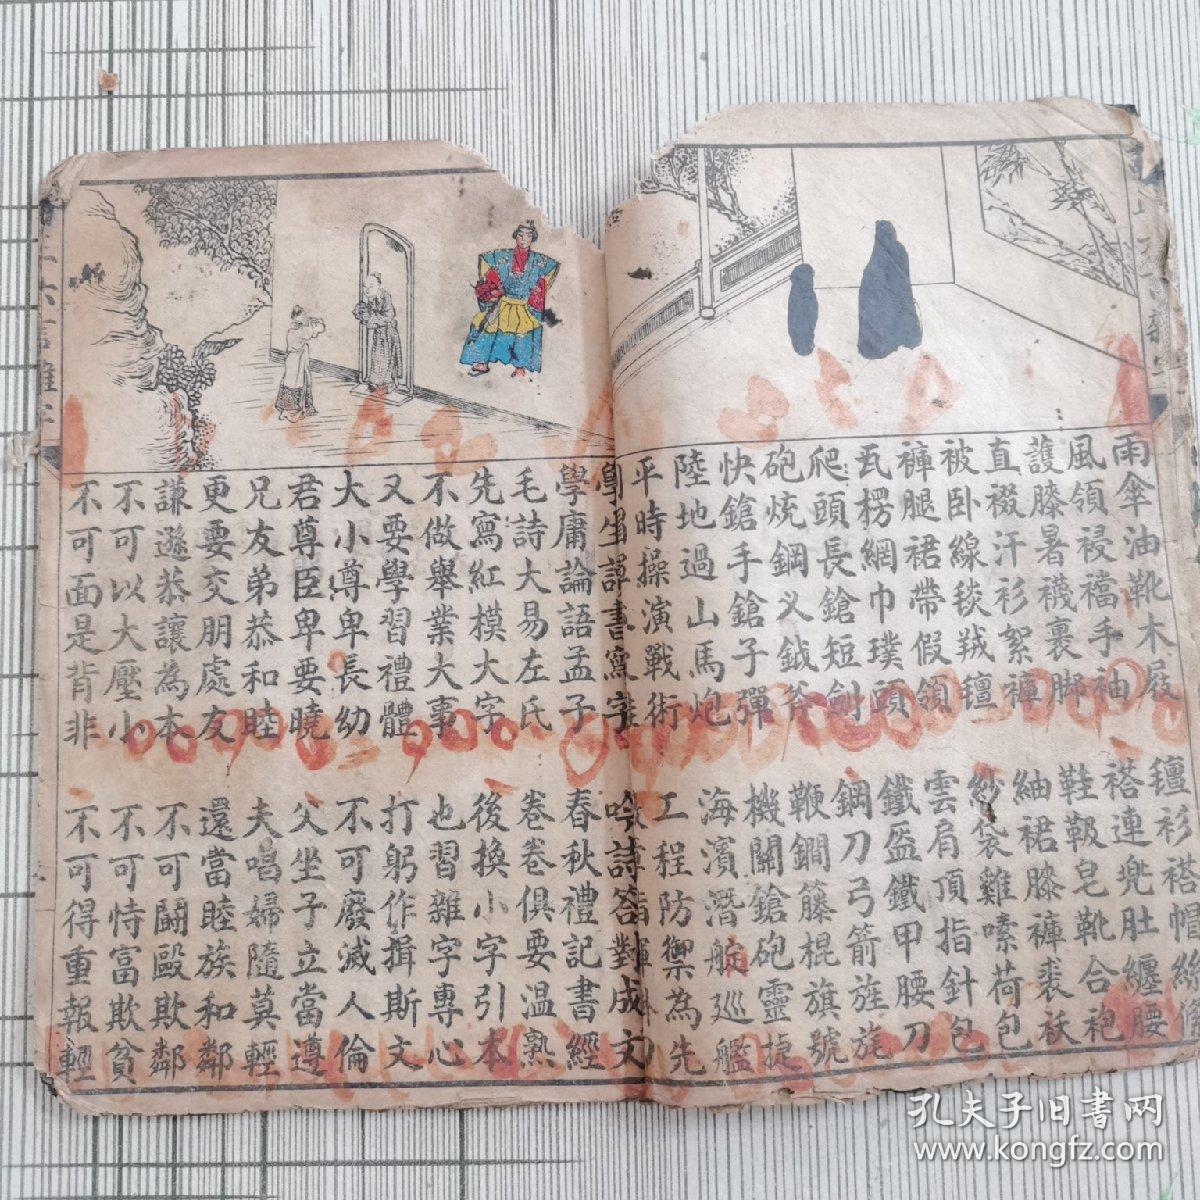 雨傘油靴木屐
氊衫褡帽絲絛
風領祲襠手袖
褡連兜肚纏腰
護膝暑襪裏脚
鞋靸皂靴合袍
直裰汗衫絮褲
紬裙膝褲裘袄
被卧線毯羢氊
紗袋雞嗉荷包
褲腿裙帶假領
雲肩頂指針包
瓦楞網巾璞頭
鐵盔鐵甲腰刀
爬頭長鎗短劍
鋼刀弓箭旌旄
砲燒鋼义鉞斧
鞭鐧籐棍旗號
快鎗手鎗子彈
機關鎗砲靈捷
陸地過山馬炮
海濱潛艇巡艦
平時操演戰術
工程防禦為先
學生讀書寫字
吟詩答對成文
學庸論語孟子
春秋禮記書經
毛詩大易左氏
卷卷俱要温熟
先寫紅模大字
後換小字引本
不做舉業大事
也習雜字專心
又要學習禮體
打躬作揖斯文
大小尊卑長幼
不可廢滅人倫
君尊臣卑要曉
父坐子立當遵
兄友弟恭和睦
夫唱婦隨莫輕
更要交朋處友
還當睦族和鄰
謙遜恭讓為本
不可鬪毆欺鄰
不可以大壓小
不可恃富欺貧
不可面是背非
不可得重報輕
六言雜字
孔夫子旧书网
www.kongfz.com